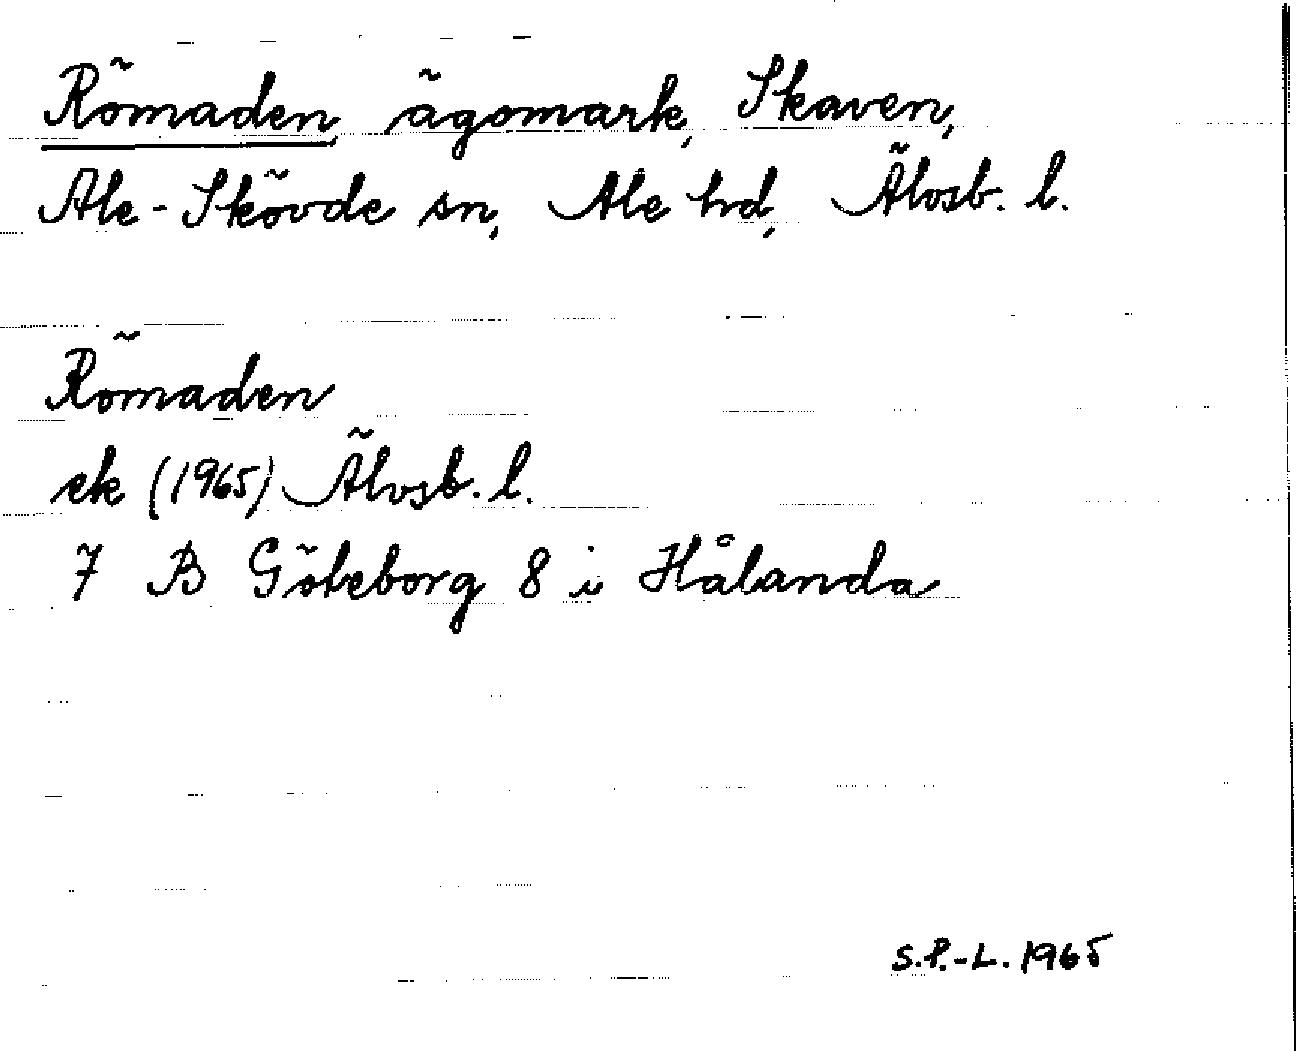 Römaden, ägomark, Skaven,
Ale-Skövde sn, Ale hd, Älvsb. l.
Römaden
ek (1965) Älvsb. l.
7 B Göteborg 8 i Hålanda
S.P.-L. 1965